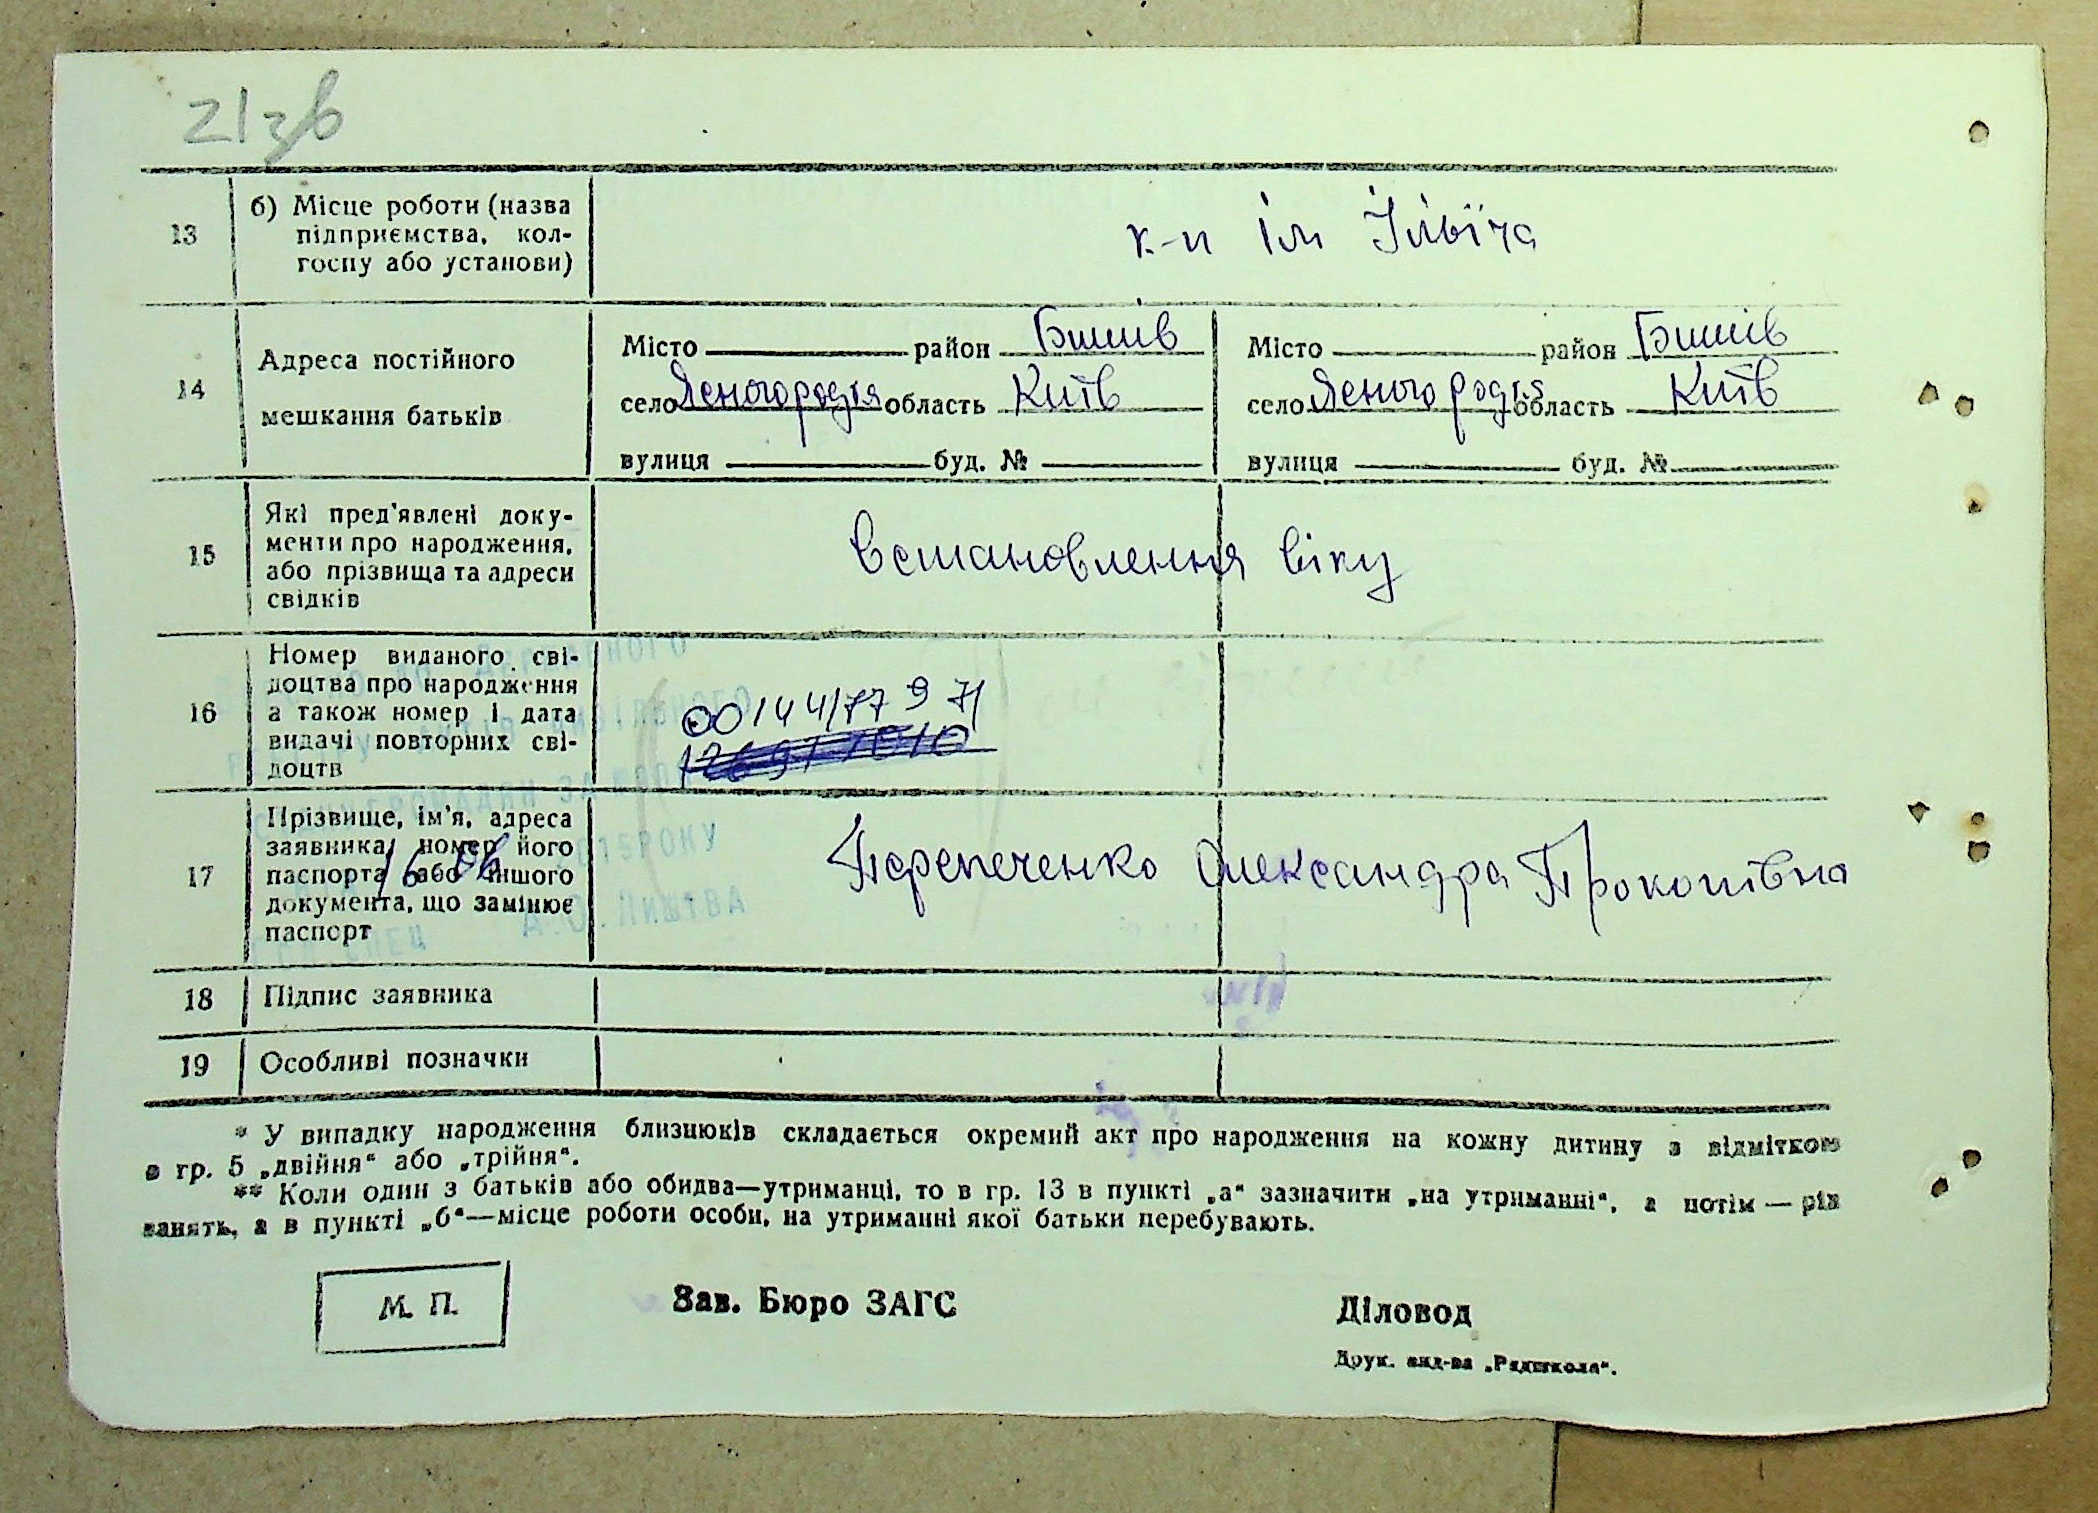 21зв
13
б) Місце роботи (назва
підприємства, кол-
госпу або установи)
к-п ім Ілліча
14
Адреса постійного
мешкання батьків
Місто район Бишів
село Ясногородка область Київ
вулиця буд. №
Місто район Бишів
село Ясногородка область Київ
вулиця буд. №
15
Які пред'явлені доку-
менти про народження,
або прізвища та адреси
свідків
встановлення віку
16
Номер виданого сві-
доцтва про народження
а також номер і дата
видачі повторних сві-
доцтв
00144/77 9 71
17
Прізвище, ім'я, адреса
заявника, номер його
паспорта або іншого
документа, що замінює
паспорт
Перепеченко Олександра Прокопівна
18
Підпис заявника
19
Особливі позначки
* У випадку народження близнюків складається окремий акт про народження на кожну дитину з відміткою
в гр. 5 „двійня“ або „трійня“.
** Коли один з батьків або обидва—утриманці, то в гр. 13 в пункті „а“ зазначити „на утриманні“, а потім — рід
занять, а в пункті „б“—місце роботи особи, на утриманні якої батьки перебувають.
М. П.
Зав. Бюро ЗАГС
Діловод
Друк. вид-ва „Радшкола“.